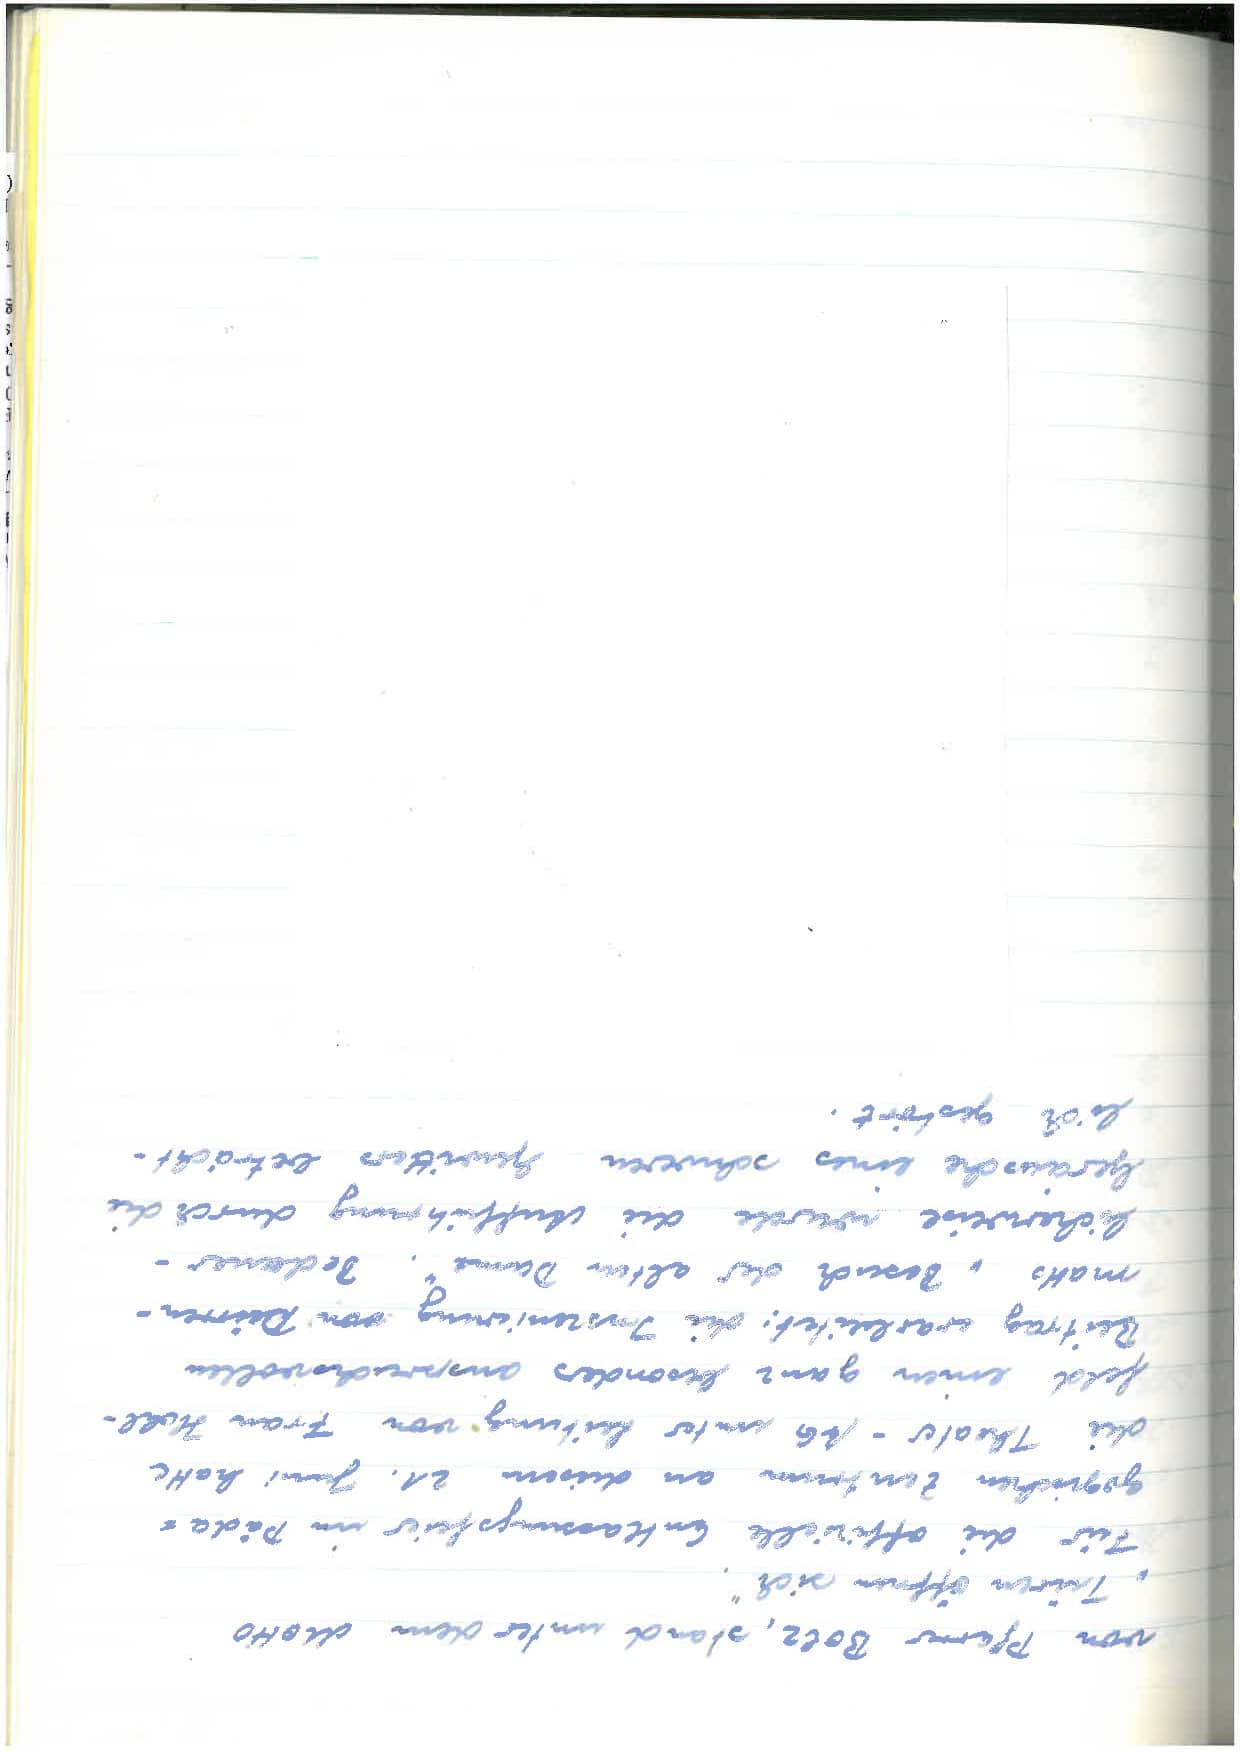 von Pfarrer Bolz, stand unter dem Motto
„Türen öffnen sich".
Für die offizielle Entlassungsfeier im Päda=
gogischen Zentrum an diesem 21. Juni hatte
die Theater-AG unter Leitung von Frau Hell-
feld einen ganz besonders anspruchsvollen
Beitrag erarbeitet: die Inszenierung von Dürren-
matts „Besuch der alten Dame". Bedauer-
licherweise wurde die Aufführung durch die
Geräusche eines schweren Gewitters beträcht-
lich gestört.